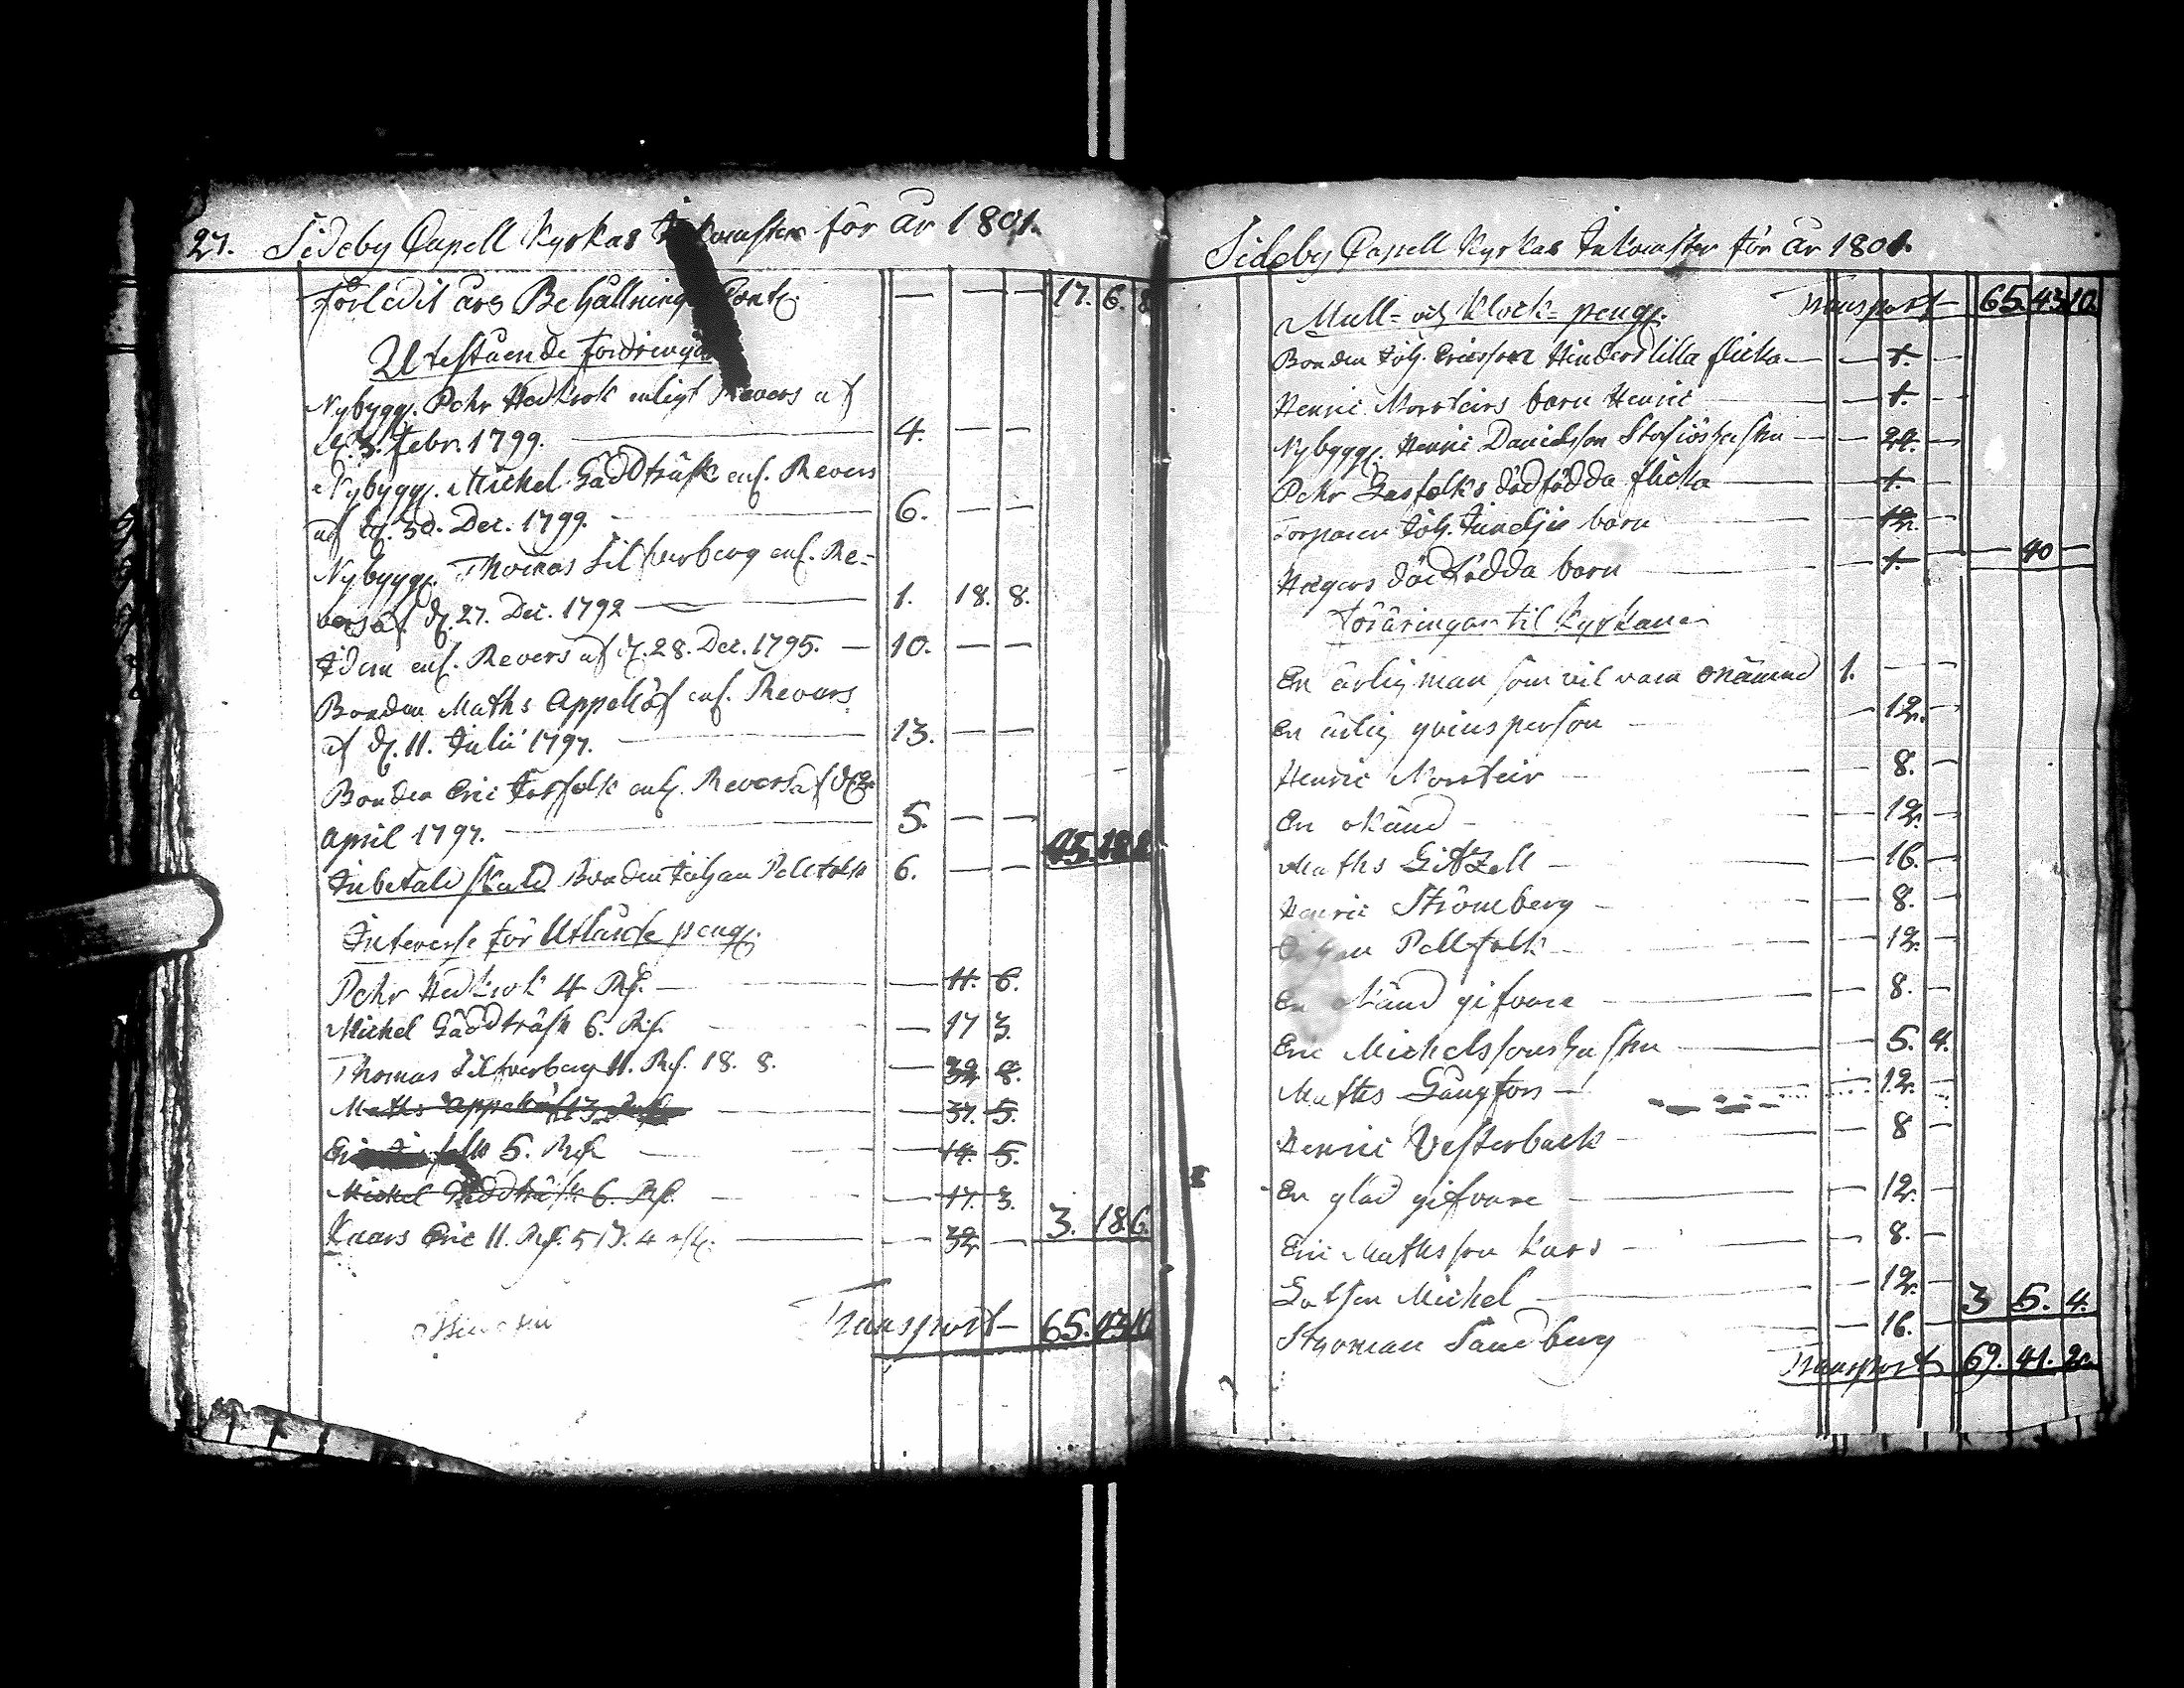 27. Sideby Capell Kyrkas Inkomster för år 1801.
Förledit års Behållning Cont. — — — 17. 6. 8
Utestående fordringar
Nybygg. Pehr Hedkrok enligt Revers af
d. 3. Febr. 1799. — 4. — —
Nybygg. Michel Gäddträsk enl. Revers
af d. 30. Dec. 1799. — 6. — —
Nybygg. Thomas Silfverberg enl. Re-
vers af d. 27. Dec. 1792 — 1. 18. 8.
Idem enl. Revers af d. 28. Dec. 1795. — 10. — —
Bonden Maths Appellöf enl. Revers
af d. 11. Julii 1797. — 13. — —
Bonden Eric enl. Revers af d. 2.
April 1797. — 5. — —
Inbetald skuld Bonden Johan Pellfolk 6. — — 45. 18. 8
Interesse för Utlånte peng.
Pehr Hedkrok 4 Rd. — — 11. 6.
Michel Gäddträsk 6. Rd. — 17 3.
Thomas Silfverberg 11. Rd. 18. 8. — 32. 8.
Maths Appellöf 13 — 37. 5.
Eric 5. Rd. — — 14. 5.
Michel Gäddträsk 6. Rd. — — 17. 3.
Knars Eric 11. Rd. 5 4 — — 32. — 3. 18. 6.
Transport — 65. 43. 10
Sideby Capell Kyrkas Inkomster för år 1801.
Transport — 65. 43. 10.
Mull- och Klock- peng.
Bonden Joh. Ericsson Hinders lilla flicka — — 1. —
Henric Norrteirs barn Henric — 1. —
Nybygg. Henric Davidsson hustru — — 24. —
Pehr Gasfolks dödfödda flicka — 1. —
Torparen Joh. barn — 12. —
Hägers dödfödda barn — — 1. — — 40 —
Föräringar til Kyrkan
En ärlig man som vil vara onämnd 1. — —
En ärlig qvinsperson — — 12. —
Henric Norrteir — — 8. —
En okänd — — 12. —
Maths Gitzell — — 16. —
Henric Strömberg — — 8. —
Johan Pellfolk — — 12. —
En okänd gifvare — — 8. —
Eric Michelssons hustru — — 5. 4.
Maths Långfors — 12. —
Henric Vesterback — — 8 —
En glad gifvare — — 12. —
Eric Mathsson Kars — — 8. —
Michel — — 12. —
Styrman Sandberg — 16. — 3 5. 4.
Transport 69. 41. 2.